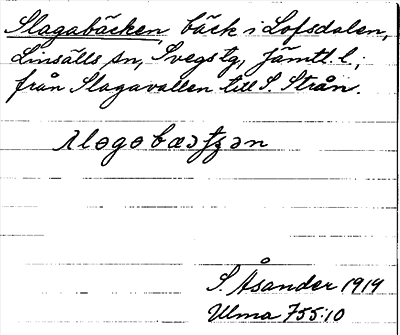 Slagabäcken, bäck i Lofsdalen,
Linsälls sn, Svegs tg, Jämtl. l.;
från Slagavallen till S. Strån.
S. Åsander 1919
Ulma 755:10